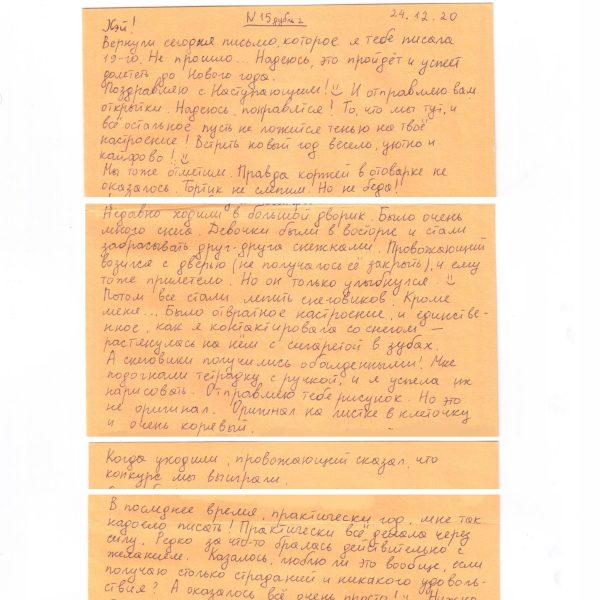 N 15 дубль 2
24.12.20
Кэй!
Вернули сегодня письмо, которое я тебе писала
19-го. Не прошло... Надеюсь, это пройдёт и успеет
долететь до Нового года.
Поздравляю с Наступающим! И отправляю вам
открытки. Надеюсь, понравятся! То, что мы тут, и
всё остальное пусть не ложится тенью на твоё
настроение! Встреть новый год весело, уютно и
кайфово!
Мы тоже отметим. Правда коржей в отоварке не
оказалось. Тортик не слепим. Но не беда!
Недавно ходили в большой дворик. Было очень
много снега. Девочки были в восторге и стали
забрасывать друг-друга снежками. Провожающий
возился с дверью (не получалось её закрыть), и ему
тоже прилетело. Но он только улыбнулся.
Потом все стали лепить снеговиков. Кроме
меня... Было отвратное настроение, и единстве-
нное, как я контактировала со снегом —
растянулась на нём с сигаретой в зубах.
А снеговики получились обалденными! Мне
подогнали тетрадку с ручкой, и я успела их
нарисовать. Отправляю тебе рисунок. Но это
не оригинал. Оригинал на листке в клеточку
и очень корявый.
Когда уходили, провожающий сказал, что
конкурс мы выиграли.
В последнее время, практически год, мне так
надоело писать! Практически всё делала через
силу. Редко за что-то бралась действительно с
желанием. Казалось, люблю ли это вообще, если
получаю столько страданий и никакого удоволь-
ствия? А оказалось всё очень просто!